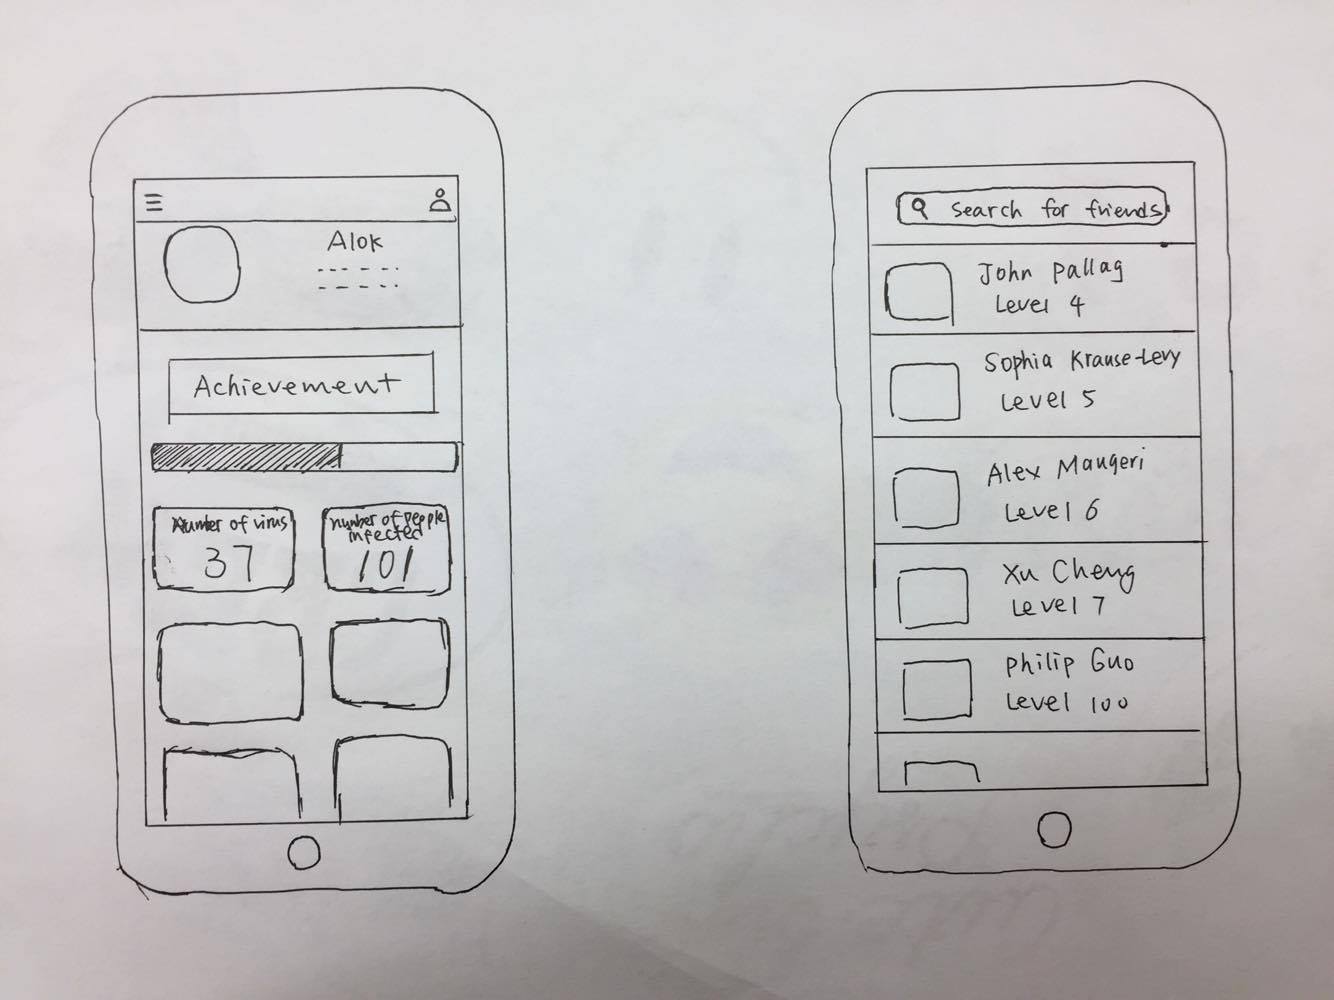 Alok
Achievement
Number of virus
37
number of people
infected
101
search for friends
John pallag
Level 4
Sophia Krause-Levy
Level 5
Alex Maugeri
Level 6
Xu Cheng
Level 7
philip Guo
Level 100